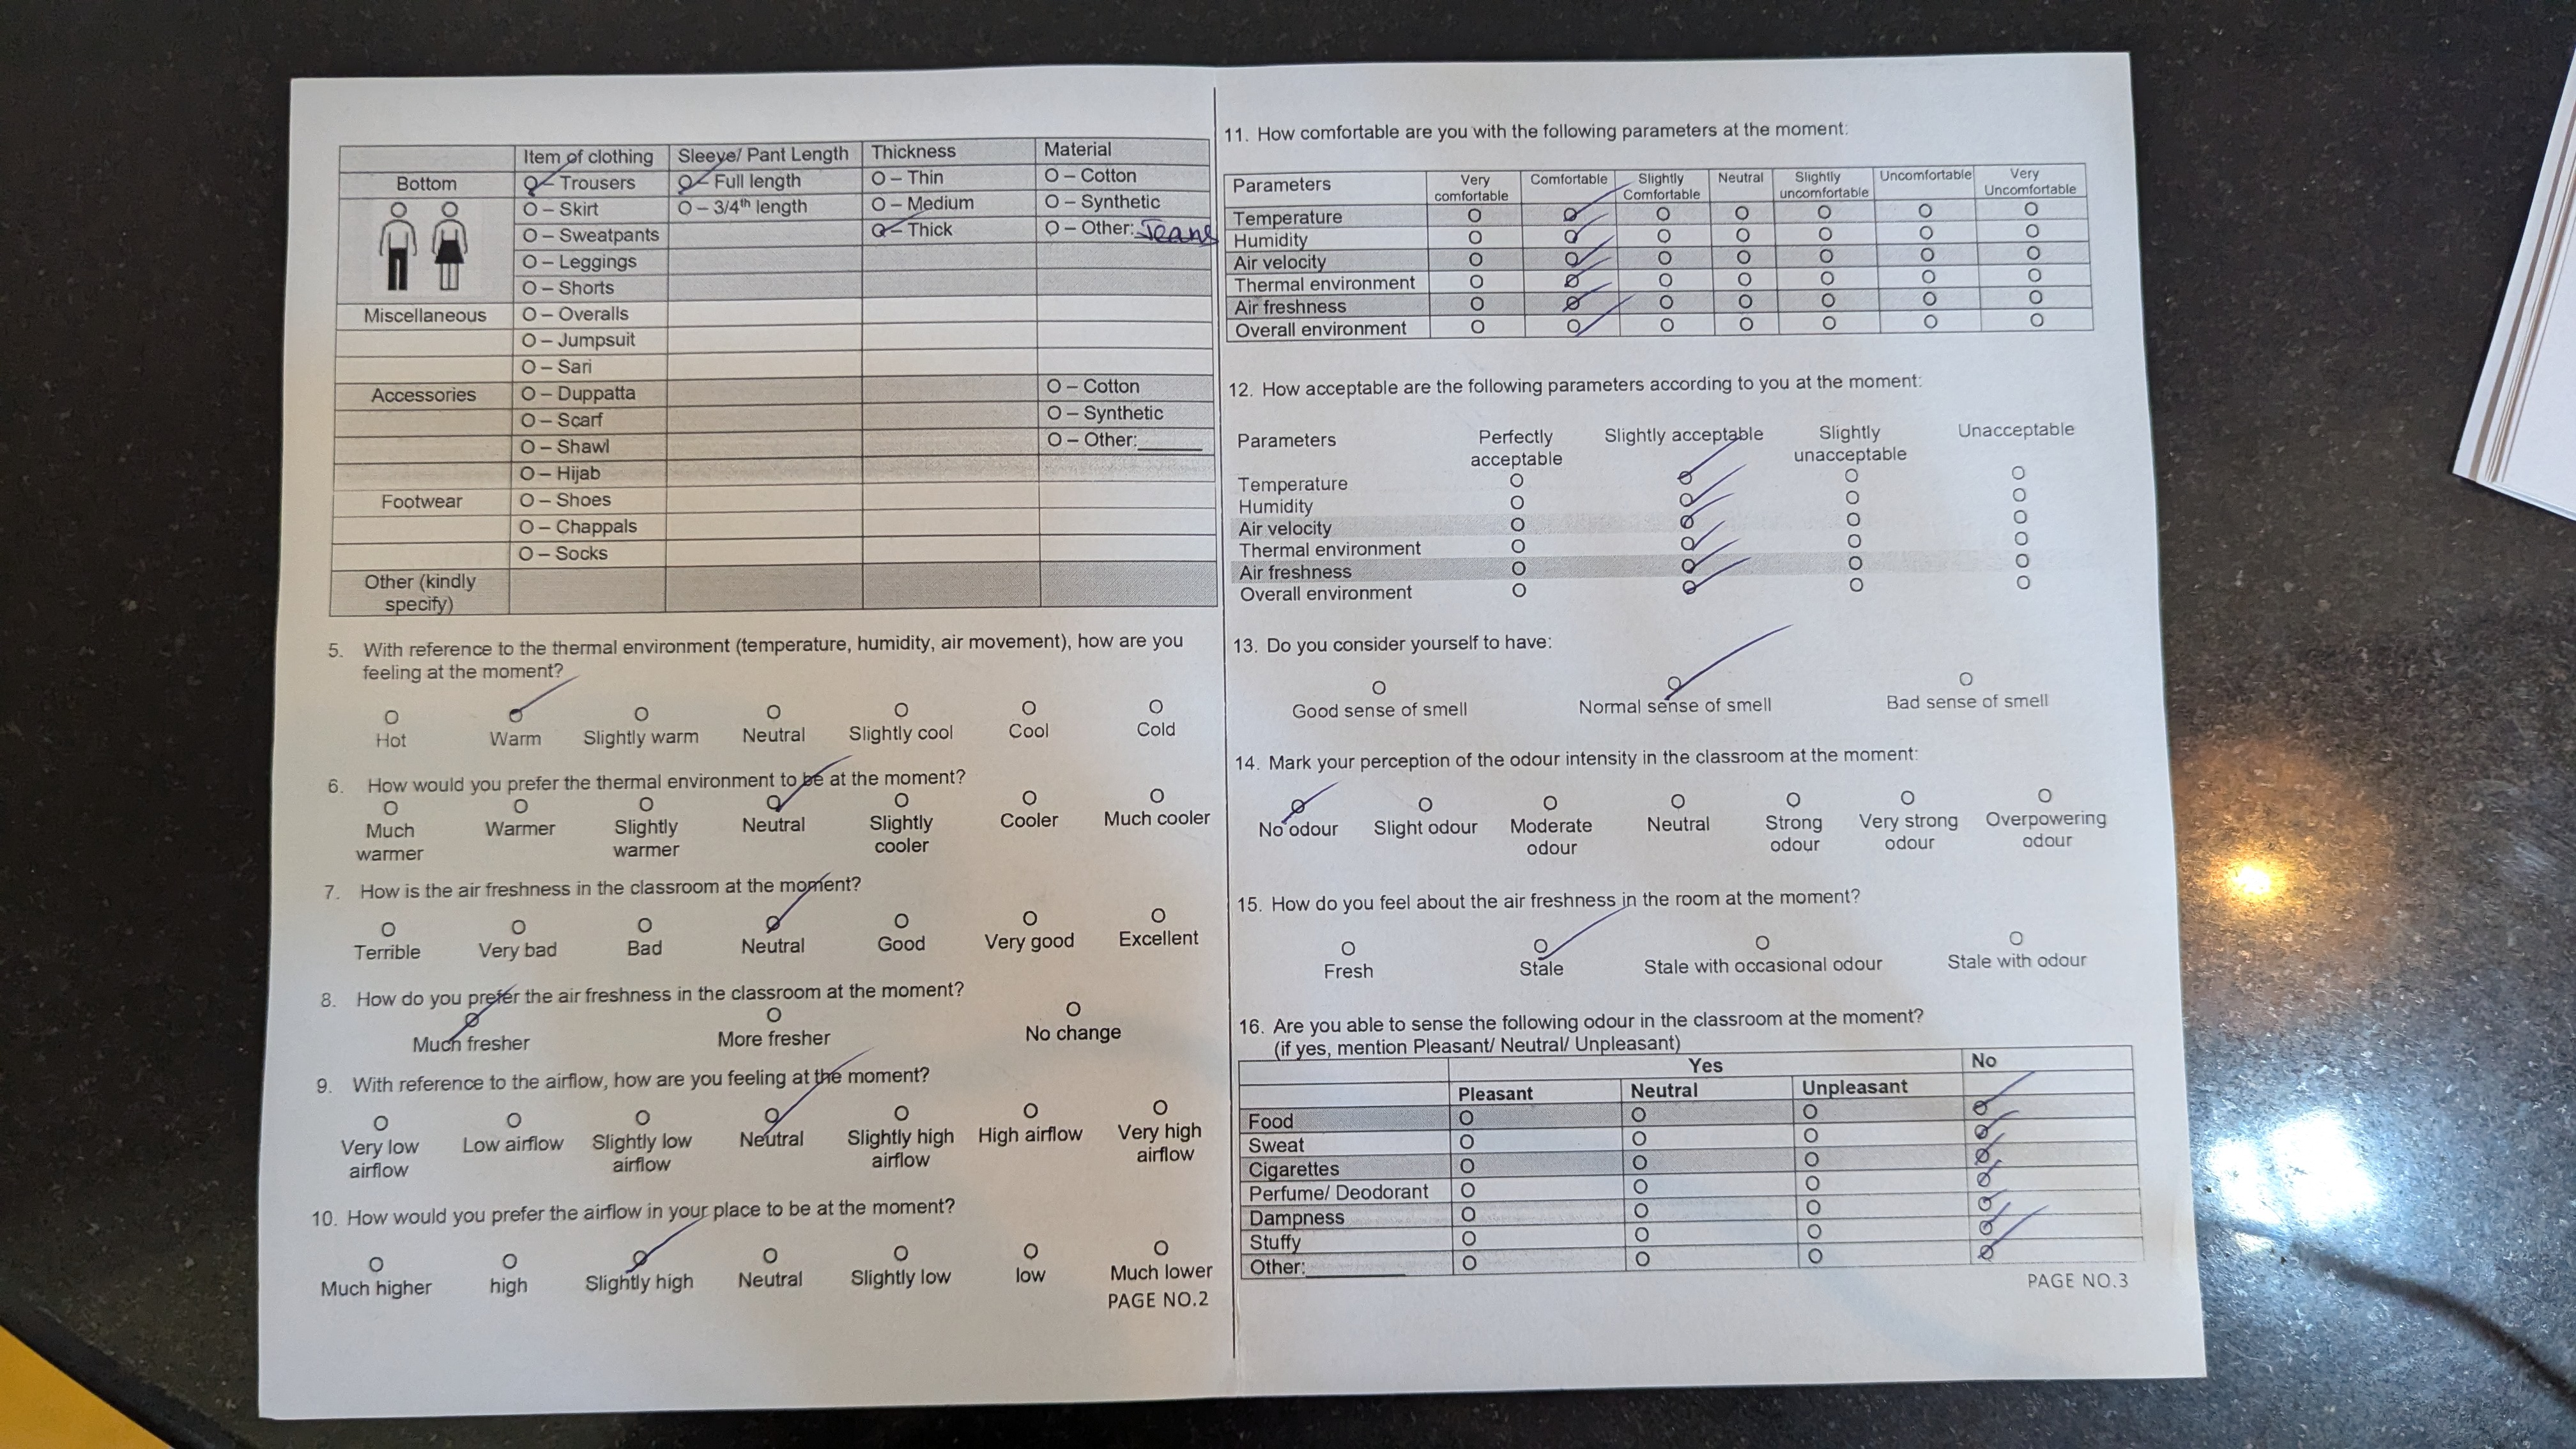 Item of clothing Sleeve/ Pant Length Thickness Material
Bottom O – Trousers O – Full length O – Thin O – Cotton
O – Skirt O – 3/4th length O – Medium O – Synthetic
O – Sweatpants O – Thick O – Other: Jeans
O – Leggings
O – Shorts
Miscellaneous O – Overalls
O – Jumpsuit
O – Sari
Accessories O – Duppatta O – Cotton
O – Scarf O – Synthetic
O – Shawl O – Other:______
O – Hijab
Footwear O – Shoes
O – Chappals
O – Socks
Other (kindly
specify)
5. With reference to the thermal environment (temperature, humidity, air movement), how are you
feeling at the moment?
O O O O O O O
Hot Warm Slightly warm Neutral Slightly cool Cool Cold
6. How would you prefer the thermal environment to be at the moment?
O O O O O O O
Much Warmer Slightly Neutral Slightly Cooler Much cooler
warmer warmer cooler
7. How is the air freshness in the classroom at the moment?
O O O O O O O
Terrible Very bad Bad Neutral Good Very good Excellent
8. How do you prefer the air freshness in the classroom at the moment?
O O O
Much fresher More fresher No change
9. With reference to the airflow, how are you feeling at the moment?
O O O O O O O
Very low Low airflow Slightly low Neutral Slightly high High airflow Very high
airflow airflow airflow airflow
10. How would you prefer the airflow in your place to be at the moment?
O O O O O O O
Much higher high Slightly high Neutral Slightly low low Much lower
PAGE NO.2
11. How comfortable are you with the following parameters at the moment:
Parameters Very Comfortable Slightly Neutral Slightly Uncomfortable Very
comfortable Comfortable uncomfortable Uncomfortable
Temperature O O O O O O O
Humidity O O O O O O O
Air velocity O O O O O O O
Thermal environment O O O O O O O
Air freshness O O O O O O O
Overall environment O O O O O O O
12. How acceptable are the following parameters according to you at the moment:
Parameters Perfectly Slightly acceptable Slightly Unacceptable
acceptable unacceptable
Temperature O O O O
Humidity O O O O
Air velocity O O O O
Thermal environment O O O O
Air freshness O O O O
Overall environment O O O O
13. Do you consider yourself to have:
O O O
Good sense of smell Normal sense of smell Bad sense of smell
14. Mark your perception of the odour intensity in the classroom at the moment:
O O O O O O O
No odour Slight odour Moderate Neutral Strong Very strong Overpowering
odour odour odour odour
15. How do you feel about the air freshness in the room at the moment?
O O O O
Fresh Stale Stale with occasional odour Stale with odour
16. Are you able to sense the following odour in the classroom at the moment?
(if yes, mention Pleasant/ Neutral/ Unpleasant)
Yes No
Pleasant Neutral Unpleasant
Food O O O O
Sweat O O O O
Cigarettes O O O O
Perfume/ Deodorant O O O O
Dampness O O O O
Stuffy O O O O
Other:__________ O O O O
PAGE NO.3